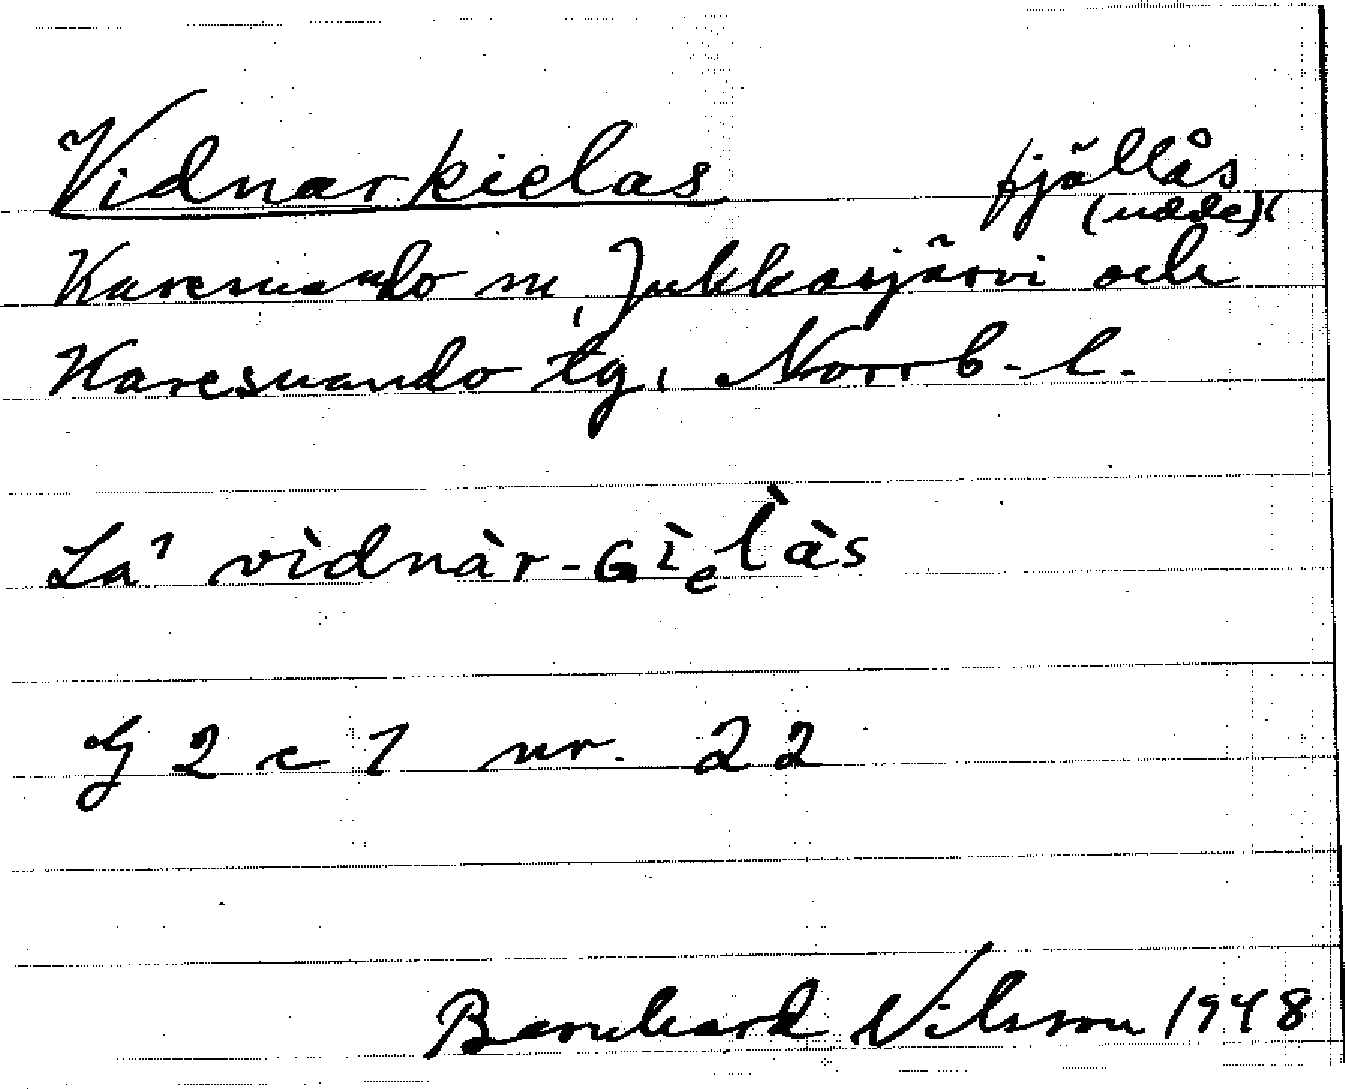 Vidnarkielas fjällås
(udde)
Karesuando sn, Jukkasjärvi och
Karesuando tg, Norrb. l.
La' vìdnàr-Gìelàs
G 2 c 1 nr. 22
Barnhard Nilsson 1948